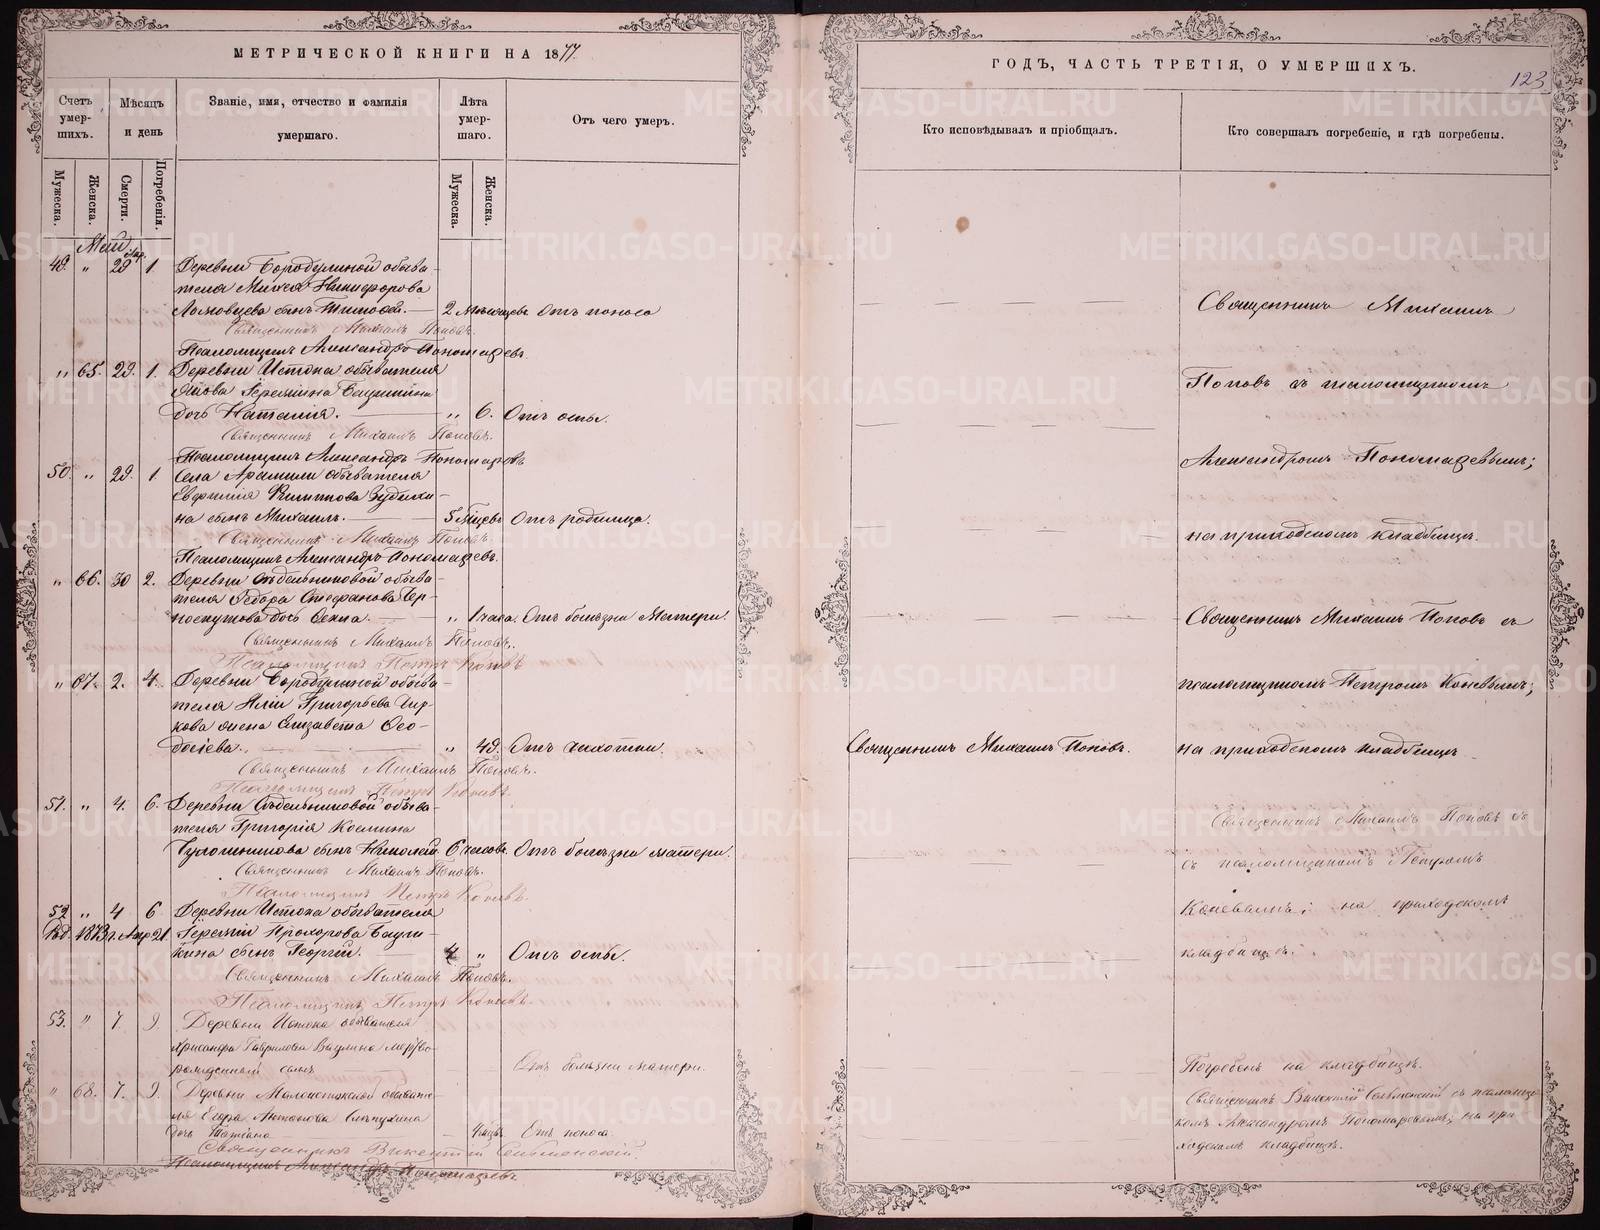 МЕТРИЧЕСКОЙ КНИГИ НА 1877.
Счетъ умер- шихъ.
Мѣсяцъ и день
Званіе, имя, отчество и фамилія умершаго.
Лѣта умер- шаго.
Отъ чего умеръ.
Мужеска.
Женска.
Смерти.
Погребенія.
Мужеска.
Женска.
Май
Апр.
49. " 29 1. Деревни Бородулиной обыва-
теля Михея Никифорова
Ломовцева сынъ Тимофей. 2 мѣсяцевъ Отъ поноса
Священникъ Михаилъ Поповъ.
Псаломщикъ Александръ Пономаревъ.
" 65. 29. 1. Деревни Истока обывателя
Якова Еремѣина
дочь Наталія. " 6. Отъ оспы.
Священникъ Михаилъ Поповъ.
Псаломщикъ Александръ Пономаревъ
50. " 29. 1. Села Арамили обывателя
Евфимія Филиппова
на сынъ Михаилъ. 5 мѣцевъ Отъ родимца.
Священникъ Михаилъ Поповъ.
Псаломщикъ Александръ Пономаревъ.
" 66. 30 2. Деревни Сѣдельниковой обыва-
теля Ѳедора Стефанова Чер-
носкутова дочь 1 часа. Отъ болѣзни Матери.
Священникъ Михаилъ Поповъ.
Псаломщикъ Петръ Коневъ
" 67. 2. 4. Деревни Бородулиной обыва-
теля Григорьева Чир-
кова жена Елизавета Ѳео-
досіева. " 49. Отъ чихотки.
Священникъ Михаилъ Поповъ.
Псаломщикъ Петръ Коневъ.
51. " 4. 6. Деревни Сѣдельниковой обыва-
теля Григорія Космина
сынъ Николай 6 часовъ. Отъ болѣзни матери.
Священникъ Михаилъ Поповъ.
Псаломщикъ Петръ Коневъ.
52 " 4 6 Деревни Истока обывателя
Род. 1873 г. Апр 21. Еремѣй Прохорова
кина сынъ Георгій. 4 " Отъ оспы.
Священникъ Михаилъ Поповъ.
Псаломщикъ Петръ Коневъ.
53. " 7. 9. Деревни Истока обывателя
Хрисанфа Гаврилова мертво-
рожденный сынъ Отъ болѣзни матери.
" 68. 7. 9. Деревни Малоистокской обывате-
ля Егора Антонова
дочь Татіана Отъ поноса
Священникъ Викентій
Псаломщикъ Александръ Пономаревъ
ГОДЪ, ЧАСТЬ ТРЕТІЯ, О УМЕРШИХЪ.
123.
Кто исповѣдывалъ и пріобщалъ.
Кто совершалъ погребеніе, и гдѣ погребены.
Священникъ Михаилъ
Поповъ съ псаломщикомъ
Александромъ Пономаревымъ;
на приходскомъ кладбищѣ.
Священникъ Михаилъ Поповъ съ
псаломщикомъ Петромъ Коневымъ;
Священникъ Михаилъ Поповъ. на приходскомъ кладбищѣ
Священникъ Михаилъ Поповъ съ
съ псаломщикомъ Петромъ
Коневымъ; на приходскомъ
кладбищѣ.
Погребенъ на кладбищѣ.
Священникъ съ псаломщи-
комъ Александромъ Пономаревымъ; на при-
ходскомъ кладбищѣ.
METRIKI.GASO-URAL.RU